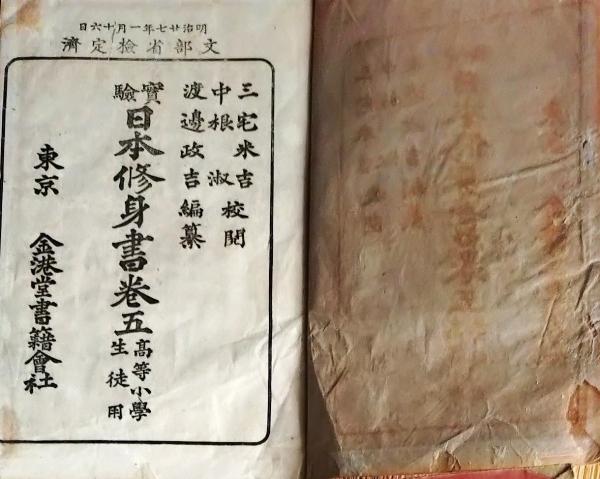 明治廿七年一月十六日
文部省檢定濟
三宅米吉
中根淑校閲
渡邊政吉編纂
實驗
日本修身書卷五
高等小學
生徒用
東京 金港堂書籍會社